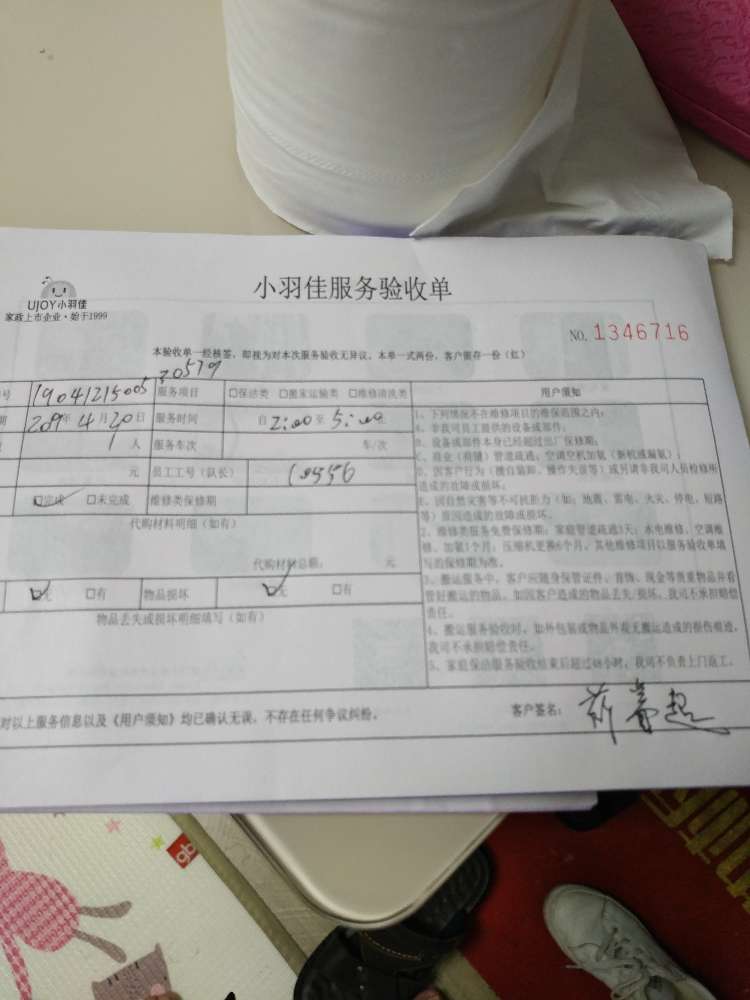 UJOY小羽佳
家政上市企业·始于1999
小羽佳服务验收单
NO. 1346716
本验收单一经核签，即视为对本次服务验收无异议。本单一式两份，客户留存一份（红）
20579
号 19041215005 服务项目 □保洁类 □搬末运输类 □维修清洗类 用户须知
期 2019年4月20日 服务时间 自2:00至5:00止
1人 服务车次 车/次
元 员工工号（队长） 10556
☑完成 □未完成 维修类保修期
代购材料明细（如有）
代购材料总额： 元
☑无 □有 物品损坏 ☑无 □有
物品丢失或损坏明细填写（如有）
1、下列情况不在维修项目的维保范围之内：
A、非我司员工提供的设备或部件；
B、设备或部件本身已经超过出厂保修期；
C、商业（商铺）管道疏通；空调空机加氨（新机或漏氨）；
D、因客户行为（擅自装卸、操作失误等）或另请非我司人员检修所
造成的故障或损坏；
E、因自然灾害等不可抗拒力（如：地震、雷电、火灾、停电、短路
等）原因造成的故障或损坏。
2、维修类服务免费保修期：家庭管道疏通3天；水电维修、空调维
修、加氟1个月；压缩机更换6个月。其他维修项目以服务验收单填
写的保修期为准。
3、搬运服务中，客户应随身保管证件、首饰、现金等贵重物品并看
管好搬运的物品。如因客户造成的物品丢失/损坏，我司不承担赔偿
责任。
4、搬运服务验收时，如外包装或物品外观无搬运造成的损伤痕迹，
我司不承担赔偿责任。
5、家庭保洁服务验收结束后超过48小时，我司不负责上门返工。
对以上服务信息以及《用户须知》均已确认无误，不存在任何争议纠纷。
客户签名：